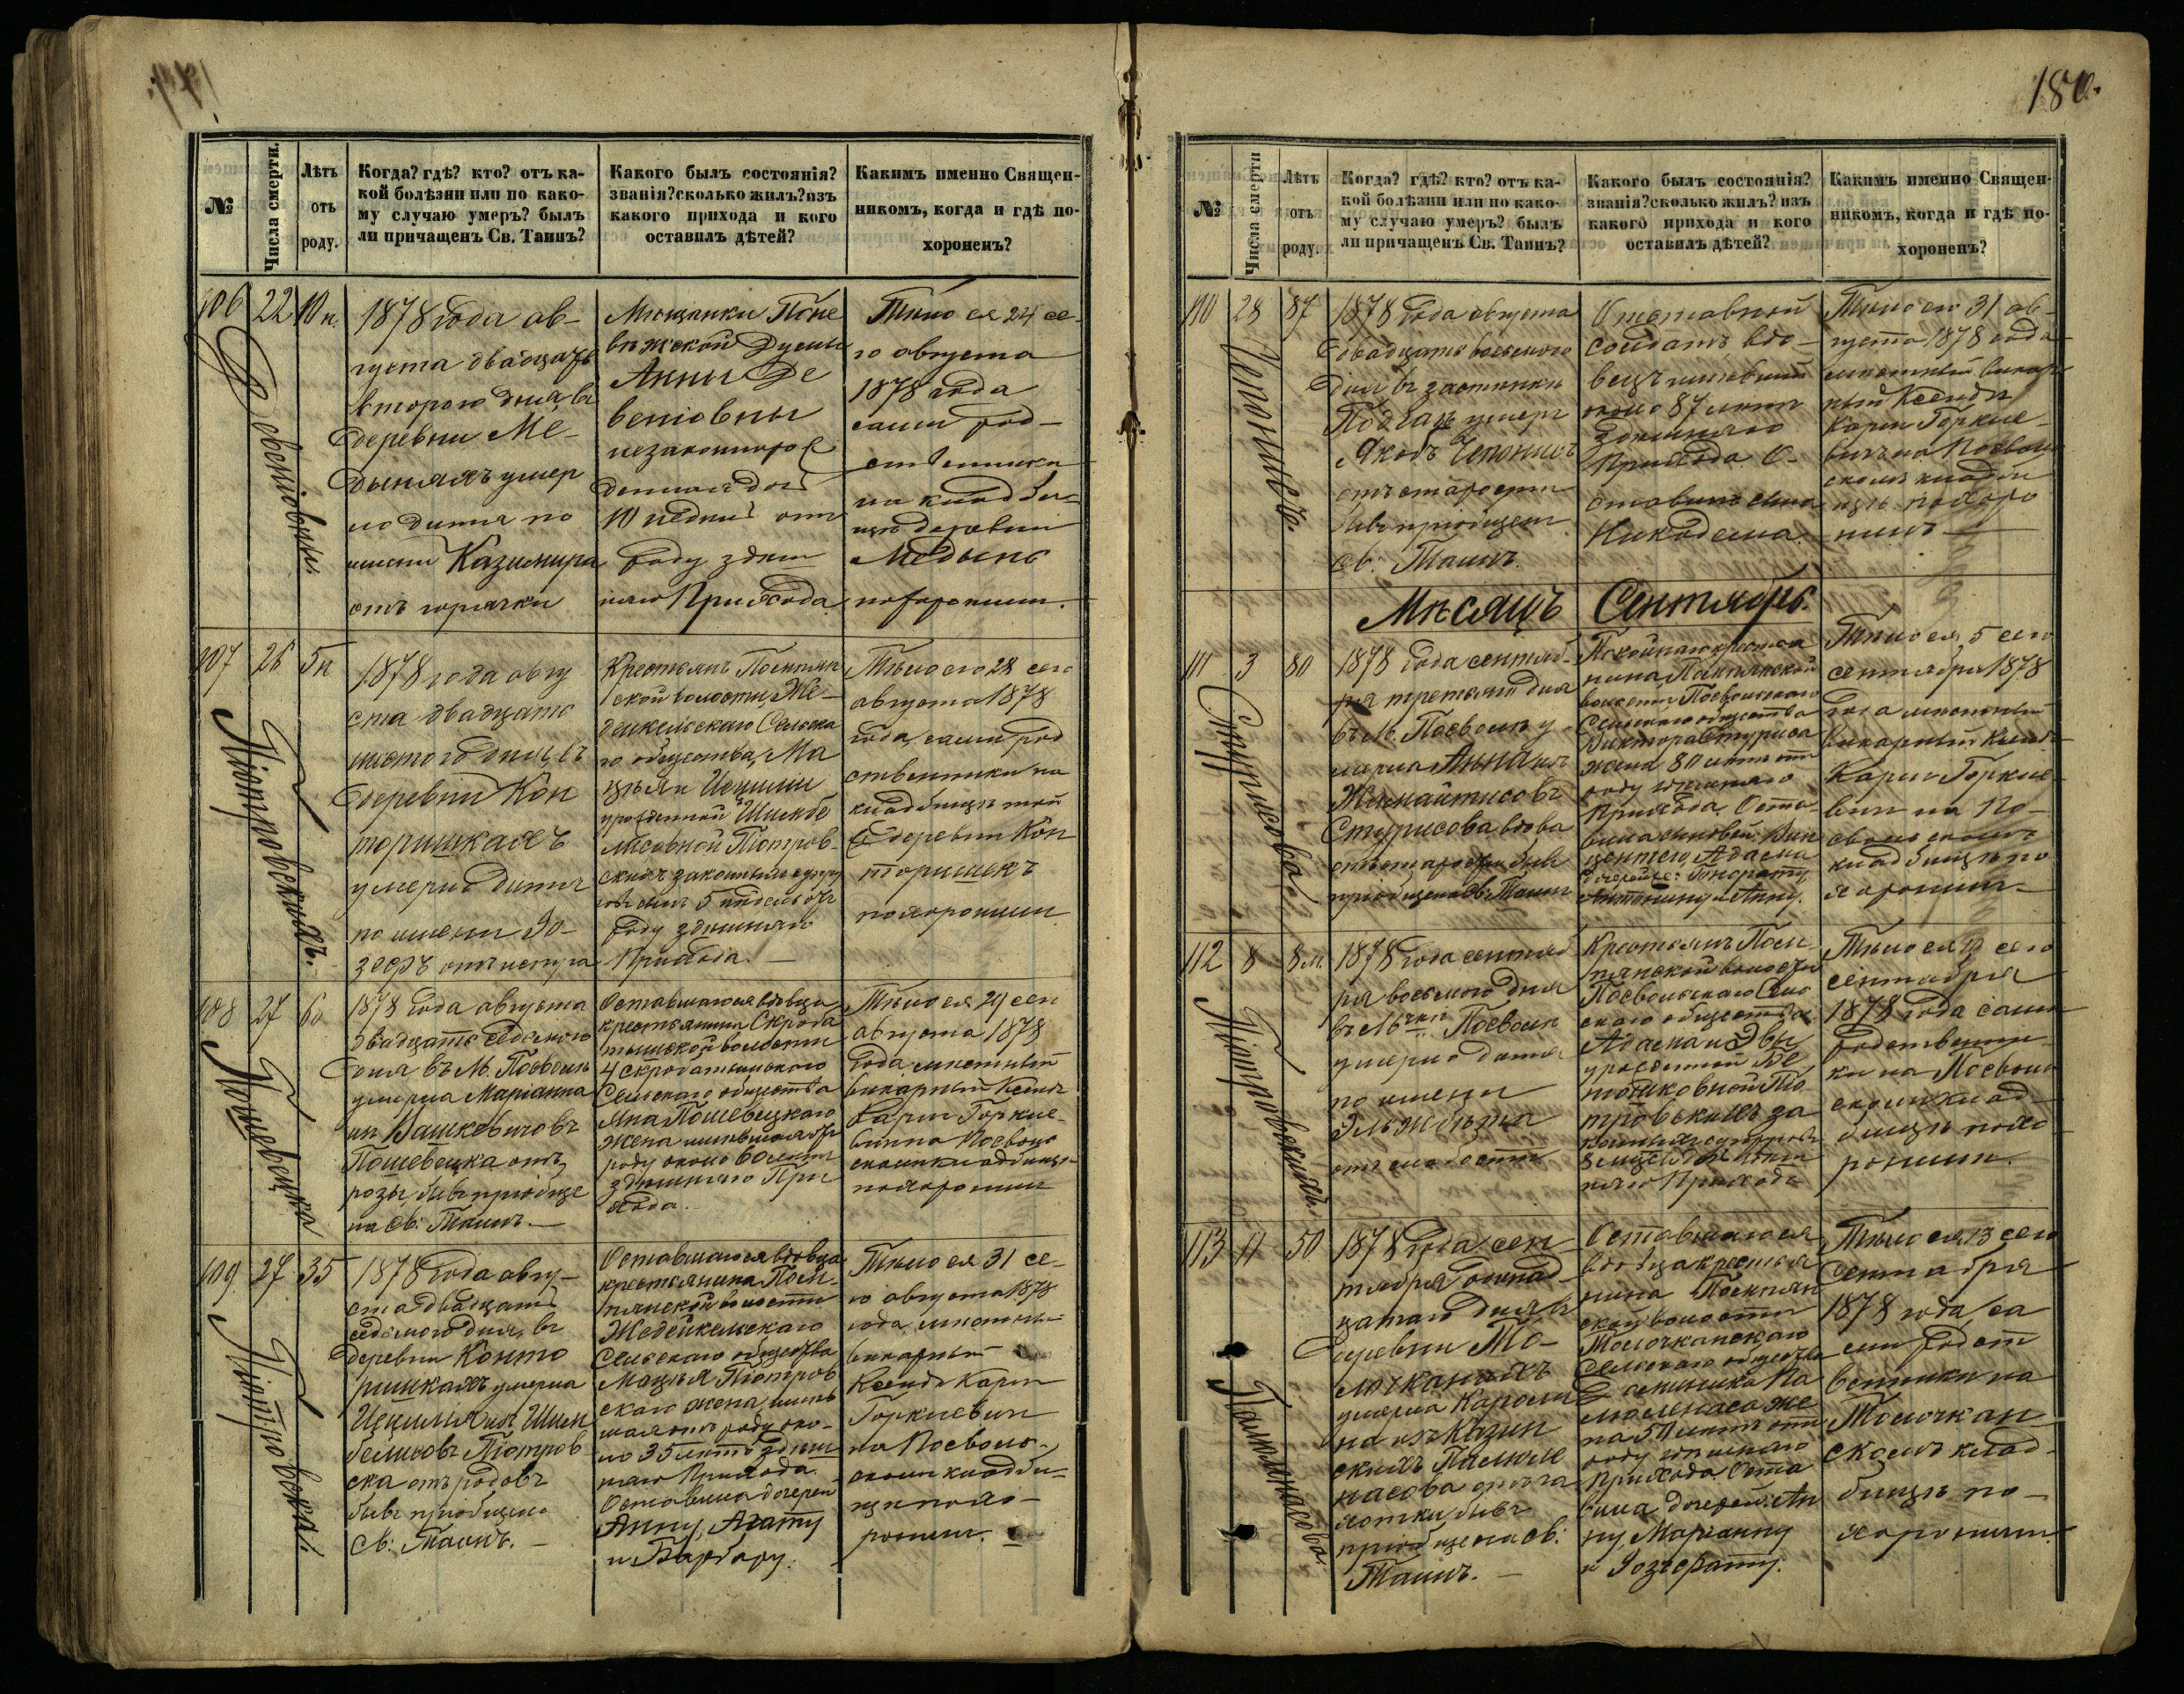 180.
№
Числа смерти.
Лѣтъ
отъ
роду.
Когда? гдѣ? кто? отъ ка-
кой болѣзни или по како-
му случаю умеръ? былъ
ли причащенъ Св. Таинъ?
Какого былъ состоянія?
званія? сколько жилъ? изъ
какого прихода и кого
оставилъ дѣтей?
Какимъ именно Священ-
никомъ, когда и гдѣ по-
хороненъ?
106
22
10 н.
1878 года ав-
густа двадцать
второго дня въ
деревни Ме-
дыняхъ умер
ло дитя по
имени Казимира
отъ горячки
Мѣщанки Поне
вѣжской Думы
Анны Де
веніовны
незаконнорож
денная дочь
10 недѣль отъ
роду здѣш
няго Прихода
Тѣло ея 24 се-
го августа
1878 года
сами род-
ственники
на кладби-
щѣ деревни
Медынь
похоронили.
107
26
5 н
Піотровскихъ.
1878 года авгу
ста двадцать
шестого дня въ
деревни Кон
торишкахъ
умерло дитя
по имени Іо-
зефъ отъ испуга
Крестьянъ Поснтян
ской волости, Же-
дейкельскаго Сельска
го общества, Ма
цѣя и Цециліи
урожденной Шимбе
лисовной Піотров-
скихъ законныхъ супру
говъ сынъ 5 недѣль отъ
роду здѣшняго
Прихода. —
Тѣло его 28 сего
августа 1878
года, сами род
ственники на
кладбищѣ той
деревни Кон
торишекъ
похоронили
108
27
60
Пошевецка
1878 года августа
двадцать седьмого
дня въ М. Посволѣ
умерла Маріанна
изъ Вашкевичовъ
Пошевецка отъ
розы бывъ приобще
на Св: Таинъ. —
Оставшагося вдовца
крестьянина Скрода
тышской волости
Сельскаго общества
Яна Пошевецкаго
жена жившая отъ
роду около 60 лѣтъ
здѣшняго При
хода. —
Тѣло ея 29 сего
августа 1878
года мѣстный
викарный Ксендзъ
Карлъ Горкие-
вичъ на Посволь
скомъ кладбищѣ
похоронилъ
109.
27
35
Піотровска.
1878 года авгу-
ста двадцать
седьмого дня, въ
деревни Конто
ришкахъ умерла
Цецилія изъ Шим
белисовъ Піотров
ска отъ родовъ
бывъ приобщена
Св: Таинъ. —
Оставшагося вдовца
крестьянина Посн-
тянской волости
Жедейкельскаго
Сельскаго общества
Мацѣя Піотров
скаго жена, жив
шая отъ роду око-
ло 35 лѣтъ здѣш
няго Прихода.
Оставила дочерей
Анну, Агату
и Барбару.
Тѣло ея 31 се-
го августа 1878
года, мѣстный
викарный
Ксендзъ Карлъ
Горкиевичъ
на Посволь-
скомъ кладби-
щѣ похо-
ронилъ.
№
Числа смерти
Лѣтъ
отъ
роду.
Когда? гдѣ? кто? отъ ка-
кой болѣзни или по како-
му случаю умеръ? былъ
ли причащенъ Св. Таинъ?
Какого былъ состоянія?
званія? сколько жилъ? изъ
какого прихода и кого
оставилъ дѣтей?
Какимъ именно Священ-
никомъ, когда и гдѣ по-
хороненъ?
110
28
87
Чепонисъ.
1878 года августа
двадцать восьмого
дня въ застѣнки
умеръ
Якобъ Чепонисъ
отъ старости
бывъ приобщенъ
Св: Таинъ.
Отставной
солдатъ, вдо-
вецъ жившій
около 87 лѣтъ
здѣшняго
Прихода О-
ставилъ сына
Никодема.
Тѣло его 31 ав-
густа 1878 года
мѣстный викар-
ный Ксендзъ
Карлъ Горкие-
вичъ на Посволь
скомъ кладби
щѣ похоро
нилъ —
Мѣсяцъ Сентябрь.
111
3
80
Стурисова.
1878 года сентяб-
ря третьяго дня
въ М. Посволѣ у-
мерла Анна изъ
Жемайтисовъ
Стурисова, вдова
отъ старости бывъ
приобщена Св: Таинъ
Покойнаго крестья
нина, Покроянской
волости Посвольскаго
Сельскаго общества
Виктора Стуриса
жена 80 лѣтъ отъ
роду здѣшняго
Прихода. Оста
вила сыновей: Вин
центего, Адама
дочерей: Гонорату
Антонину и Анну.
Тѣло ея, 5 сего
сентября 1878
года мѣстный
викарный Ксендзъ
Карлъ Горкие-
вичъ на По-
свольскомъ
кладбищѣ по
хоронилъ —
112
8
8 м.
Піотровскихъ.
1878 года сентяб
ря восьмого дня
въ М-чки Посволѣ
умерло дитя
по имени
Эльжбѣта
отъ слабости
Крестьянъ Посн-
тянской волости
Посвольскаго Сель
скаго общества
Адама и Эвы
урожденной
Піо
тровскихъ за
конныхъ супруговъ
Прихода
Тѣло ея сего
сентября
1878 года сами
родственни-
ки на Посволь
скомъ клад-
бищѣ похо
ронили.
113
11
50
Палюлисова.
1878 года сен-
тября одинад-
цатаго дня въ
деревни То-
лючканахъ
умерла Кароли
на изъ Казин
скихъ
отъ
бывъ
приобщена Св:
Таинъ. —
Оставшагося
вдовца крестья
нина Поснтян
ской волости
Толючканскаго
Сельскаго общества
Доминика Па
же
на 50 лѣтъ отъ
роду здѣшняго
Прихода. Оста
вила дочерей: Ан
ну, Маріанну
и Іозефату.
Тѣло ея 13 сего
Сентября
1878 года, са
ми родст
венники на
Толючкан
скомъ клад-
бищѣ по-
хоронили.